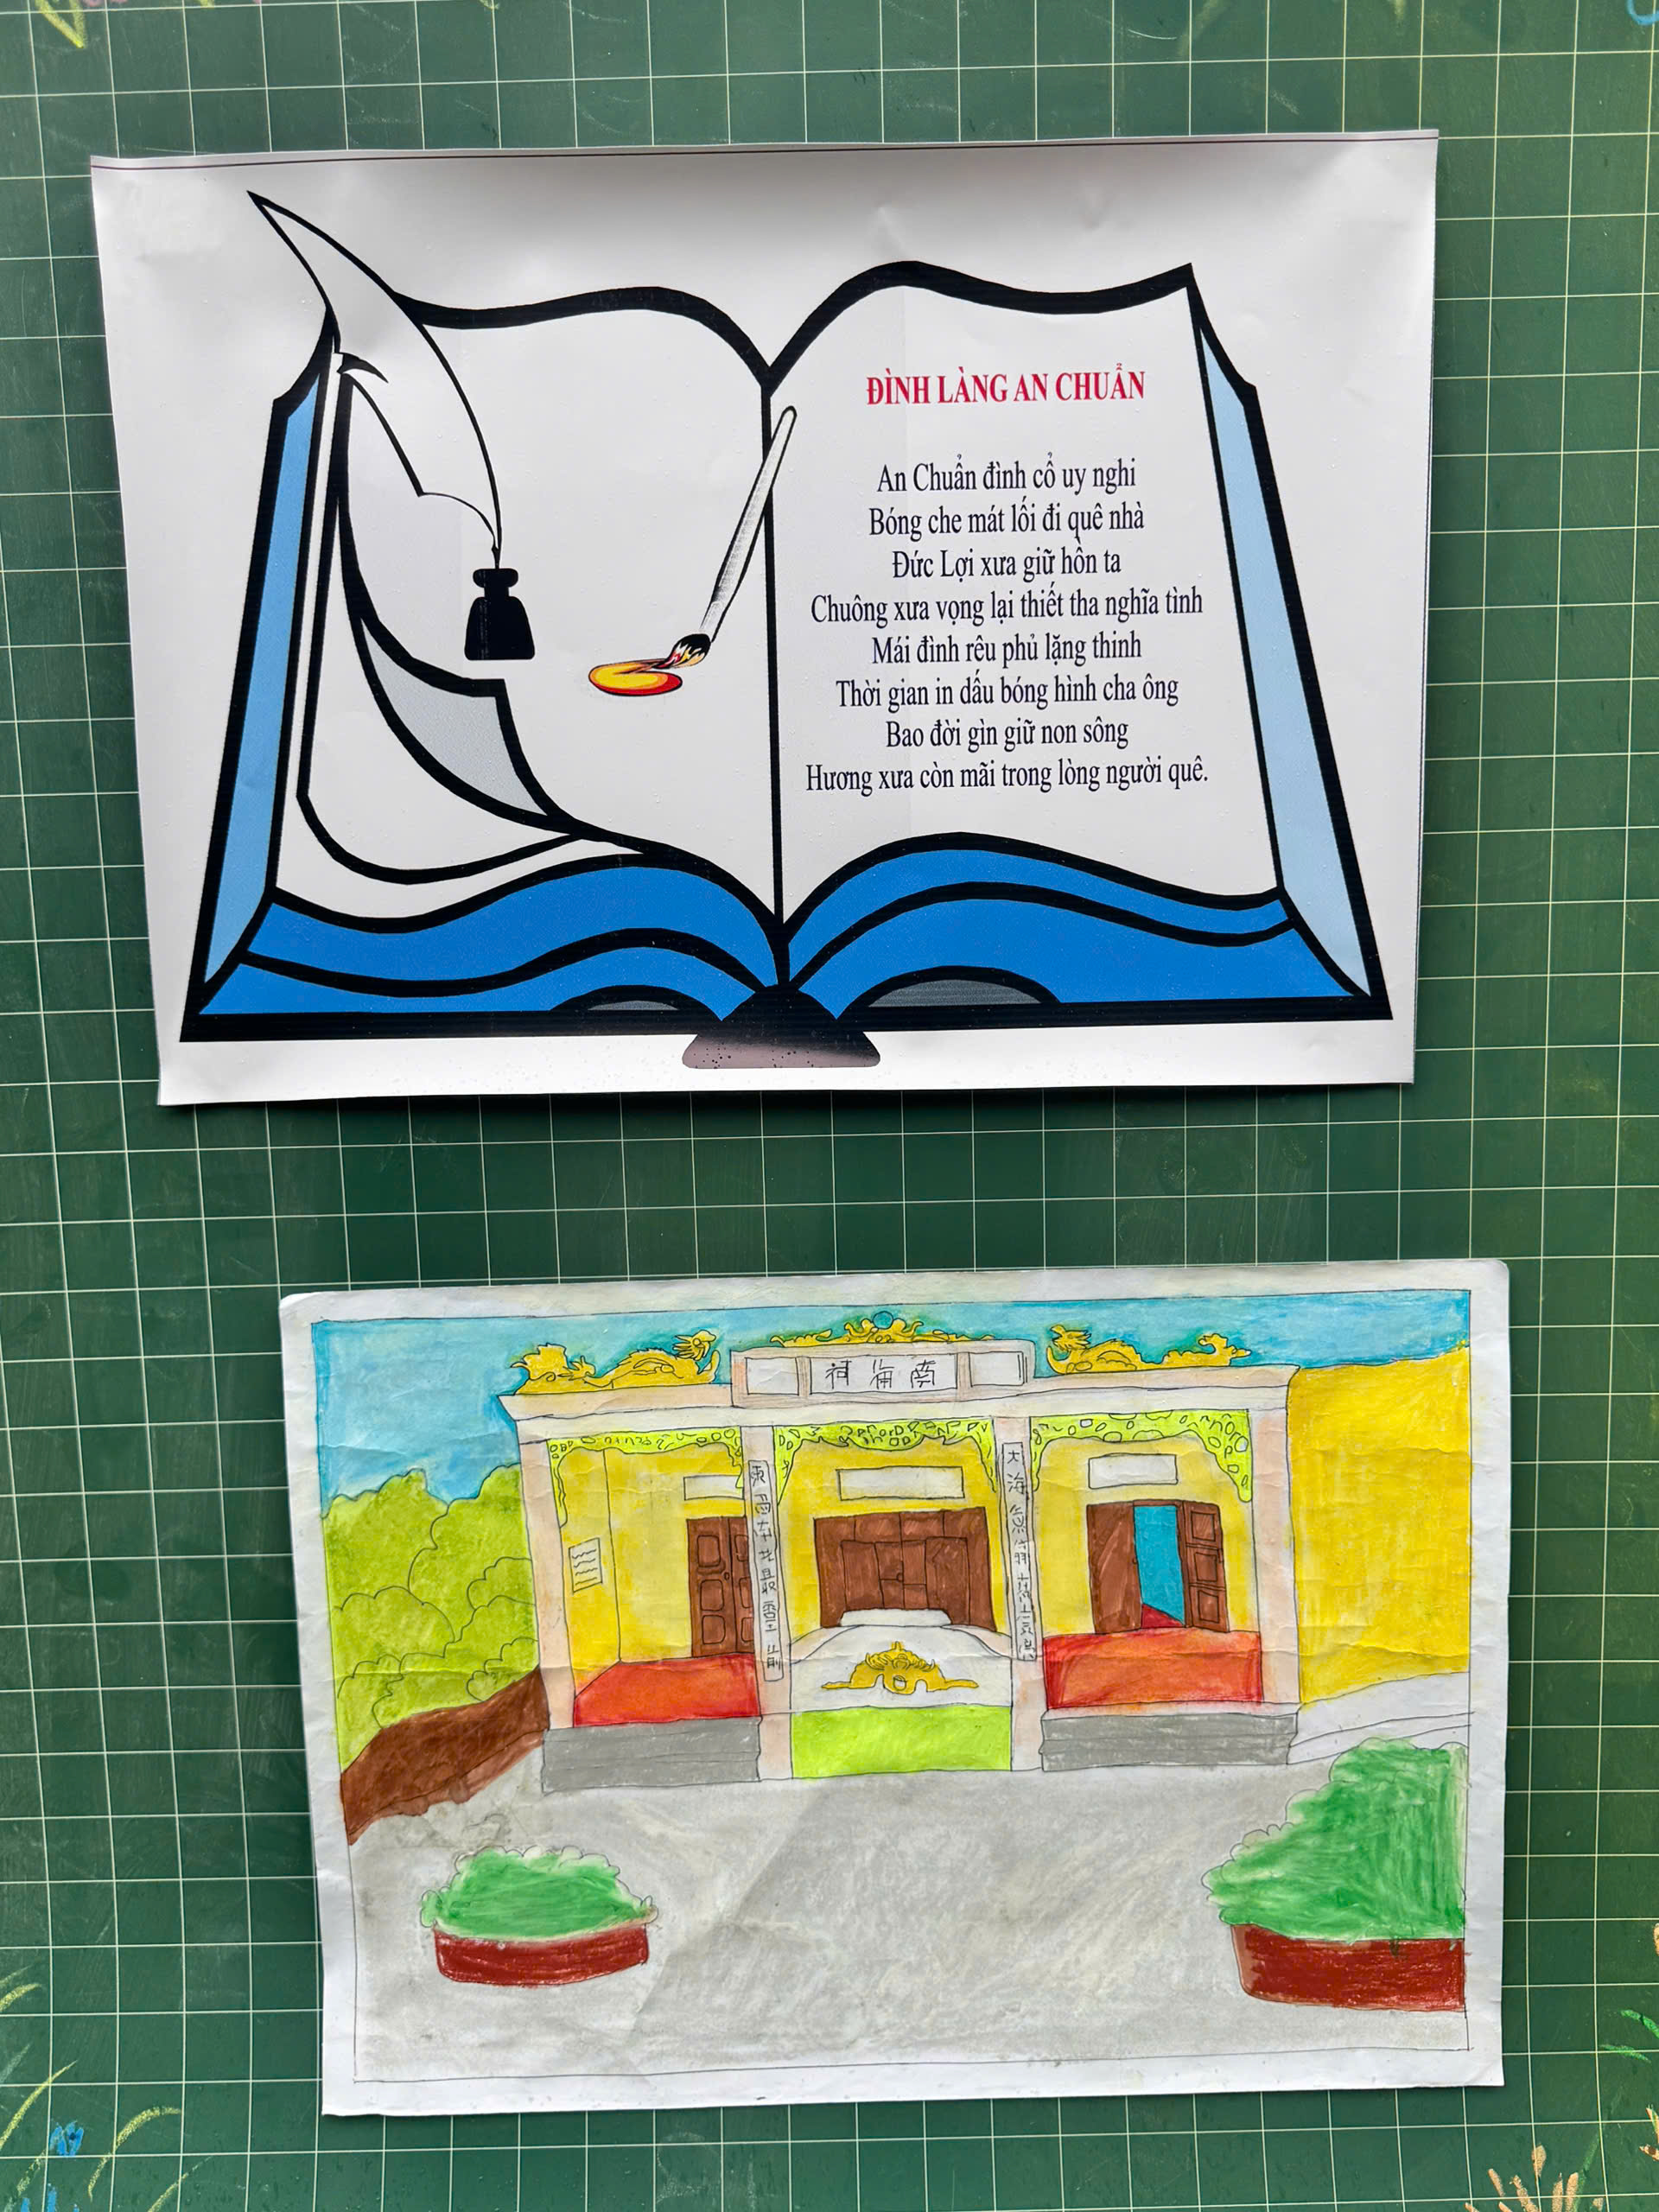 ĐÌNH LÀNG AN CHUẨN
An Chuẩn đình cổ uy nghi
Bóng che mát lối đi quê nhà
Đức Lợi xưa giữ hồn ta
Chuông xưa vọng lại thiết tha nghĩa tình
Mái đình rêu phủ lặng thinh
Thời gian in dấu bóng hình cha ông
Bao đời gìn giữ non sông
Hương xưa còn mãi trong lòng người quê.